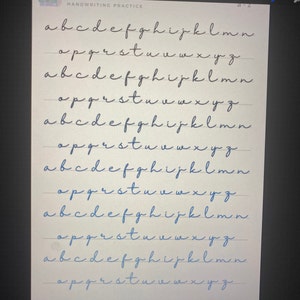 HANDWRITING PRACTICE
a b c d e f g h i j k l m n
o p q r s t u v w x y z
a b c d e f g h i j k l m n
o p q r s t u v w x y z
a b c d e f g h i j k l m n
o p q r s t u v w x y z
a b c d e f g h i j k l m n
o p q r s t u v w x y z
a b c d e f g h i j k l m n
o p q r s t u v w x y z
a b c d e f g h i j k l m n
o p q r s t u v w x y z